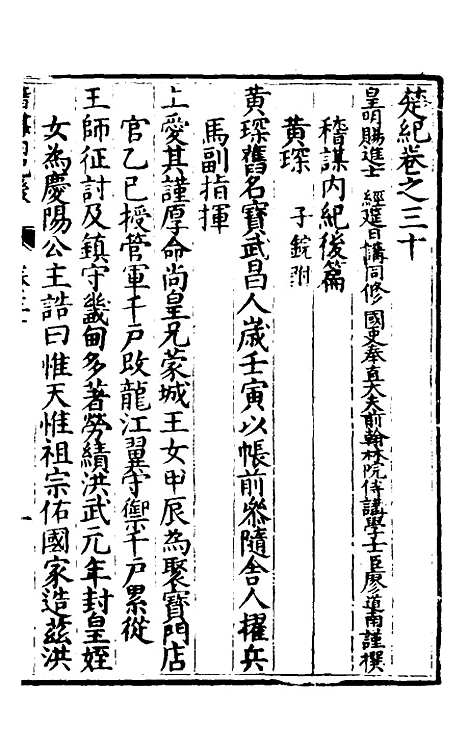 楚紀卷之三十
皇明賜進士 經筵日講同修 國史奉直大夫前翰林院侍講學士臣廖道南謹撰
稽謀內紀後篇
黃琛 子鋴附
黃琛舊名寶武昌人歲壬寅以帳前叅隨舍人擢兵
馬副指揮
上愛其謹厚命尚皇兄蒙城王女甲辰為聚寶門店
官乙巳授管軍千戶改龍江翼守禦千戶累從
王師征討及鎮守畿甸多著勞績洪武元年封皇姪
女為慶陽公主誥曰惟天惟祖宗佑國家造茲洪